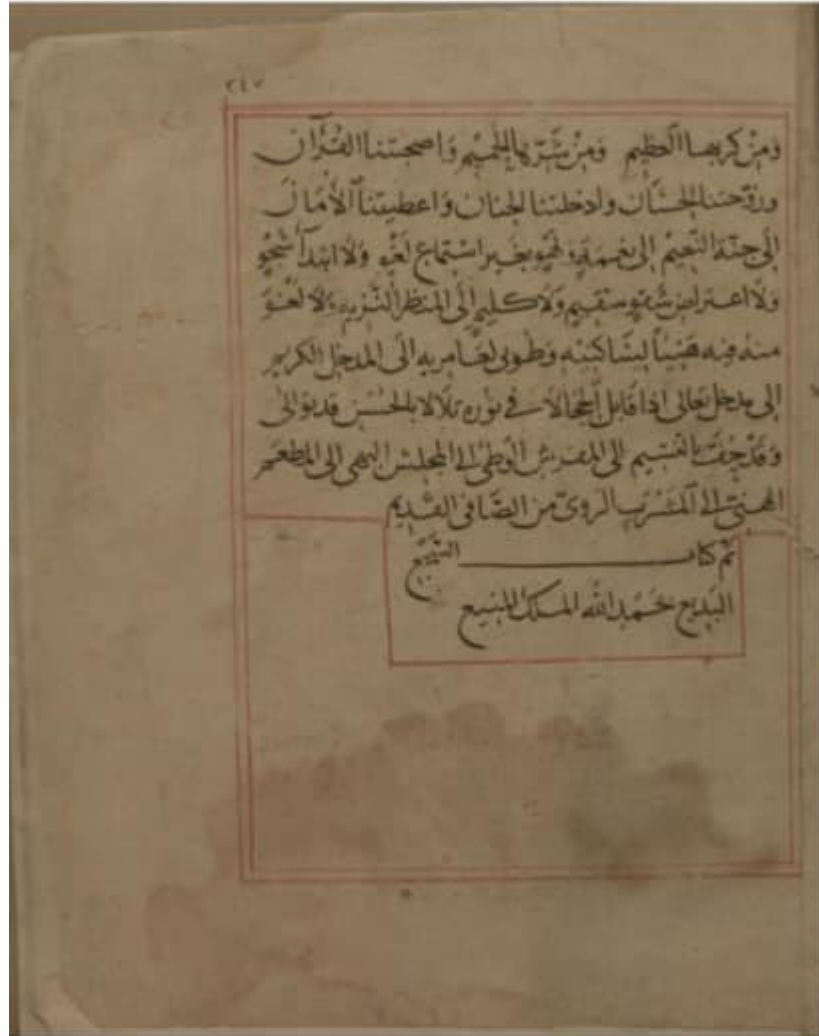 ٢٤٧
ومن كربها العظيم ومن شرّها الحميم وأصحبتنا القرآن
وزوّجتنا الحسان وادخلتنا الجنان واعطيتنا الأمان
إلى جنة النّعيم إلى نعمة بغير استماع لغو ولا
ولا اعتراض شقو سقيم ولا كليم إلى المنظر النّزيه لا لغو
منه فيه هنيئاً لساكنيه وطوبى لعامريه الى المدخل الكريم
إلى مدخل تعالى في نوره تلالا بالحسن قد توالى
وقد حفّ بالنسيم الى المفرش الوطي الى المجلس البهي الى المطعم
الهنيّ الى المشرب الرويّ من الصّافي القديم
تم كتاب التّسبيع
البديع بحمد الله الملك المنيع